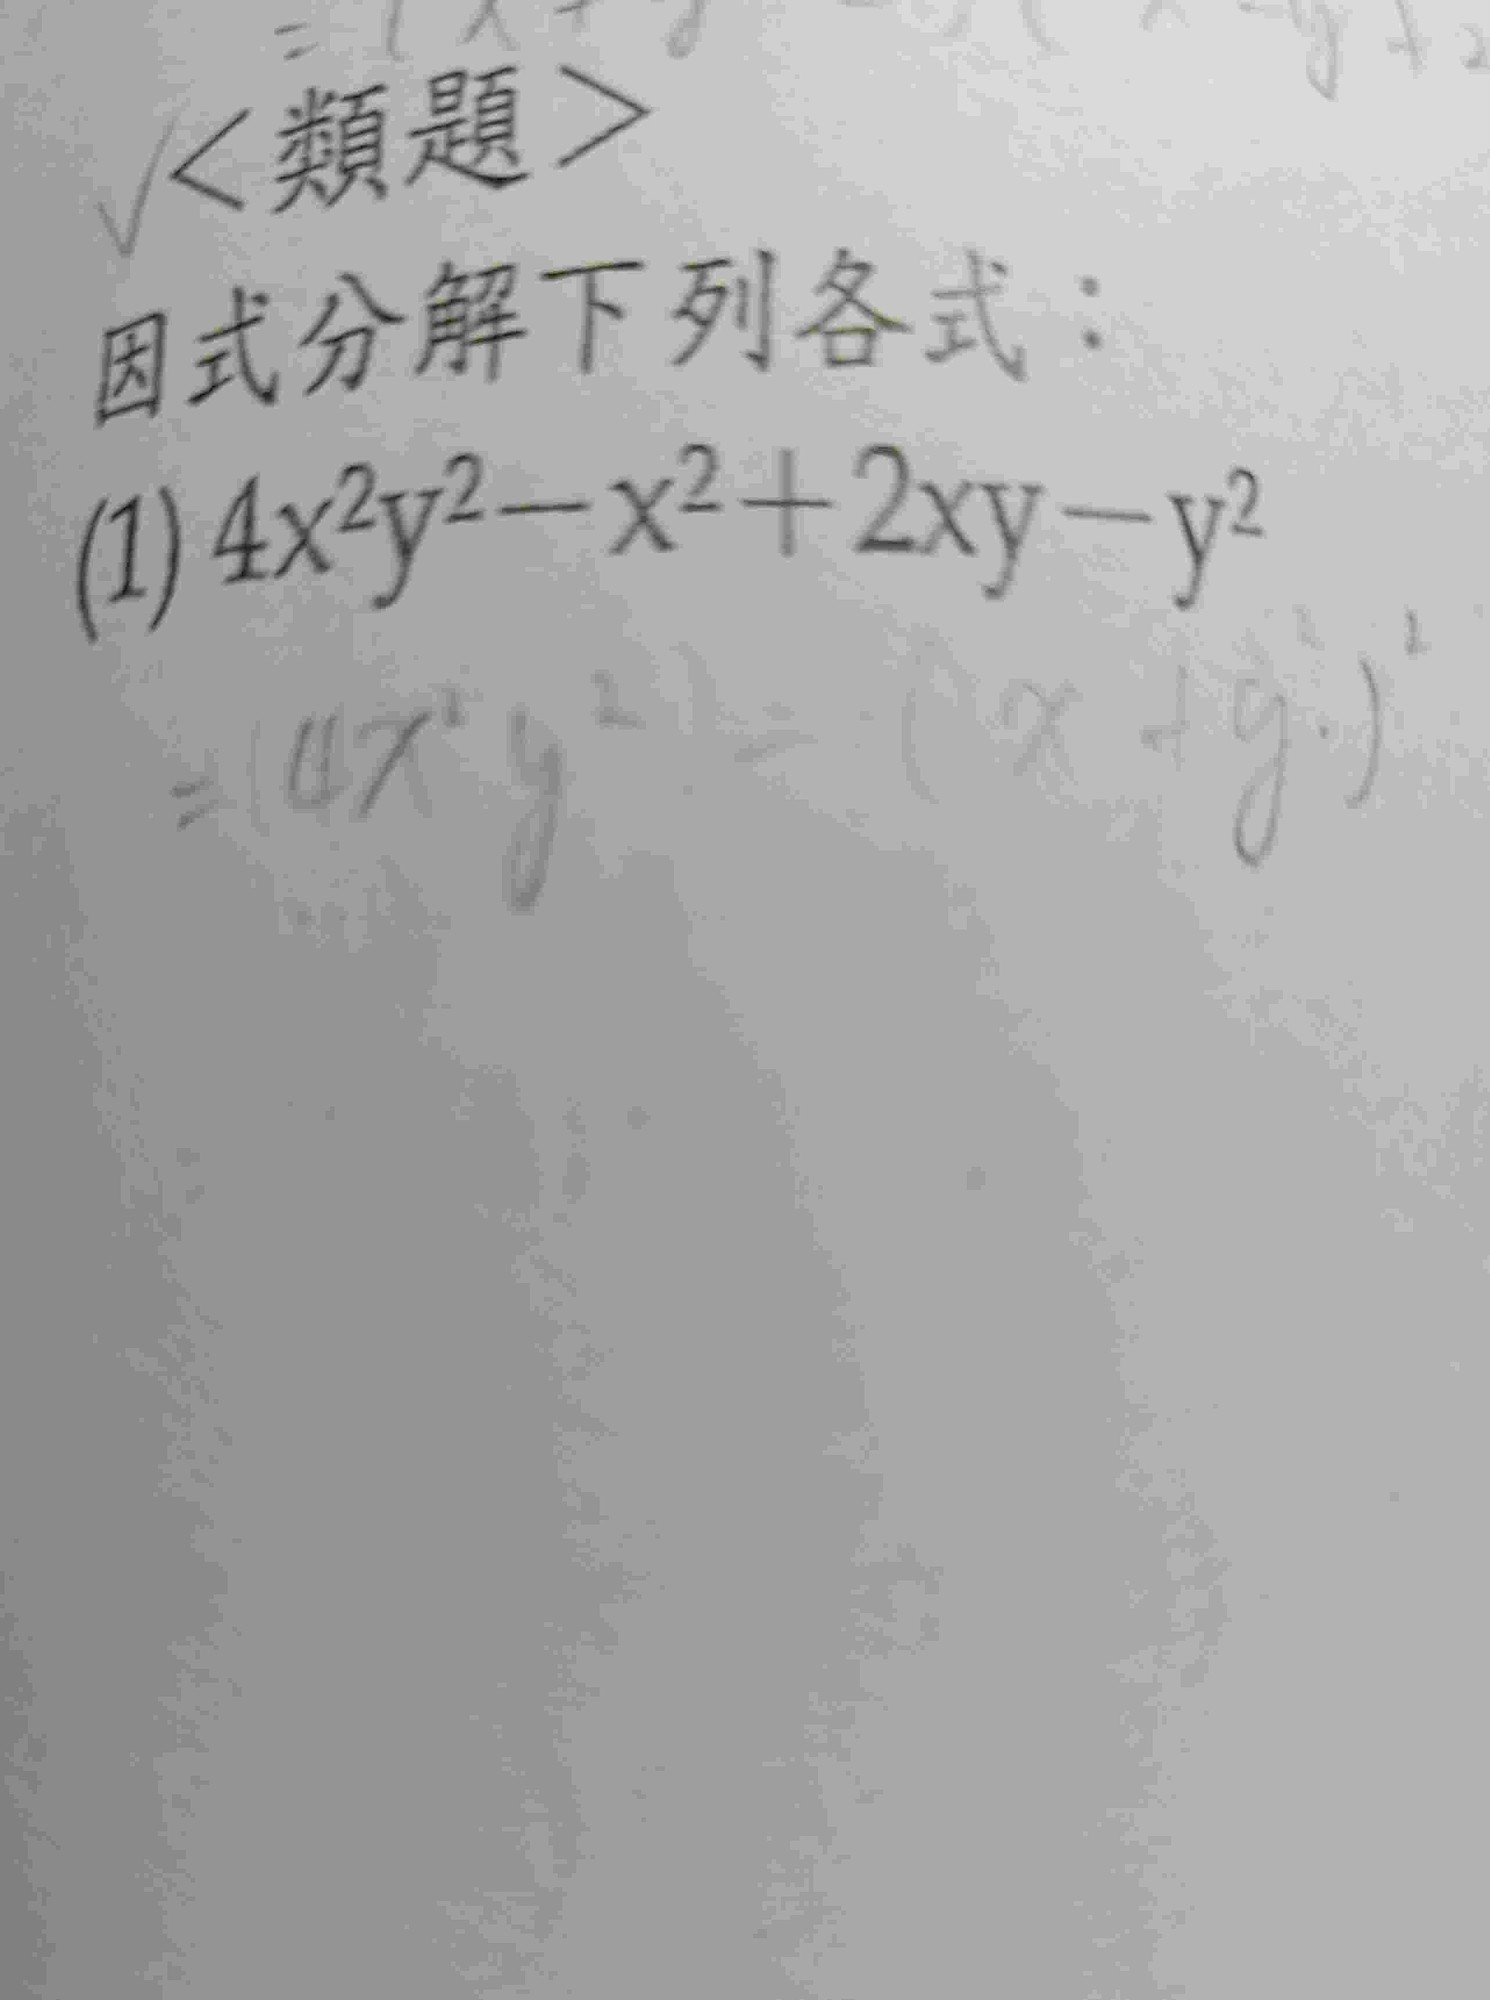 <類題>
因式分解下列各式：
(1) 4x²y²－x²＋2xy－y²
=(4x²y²)－(x+y)²